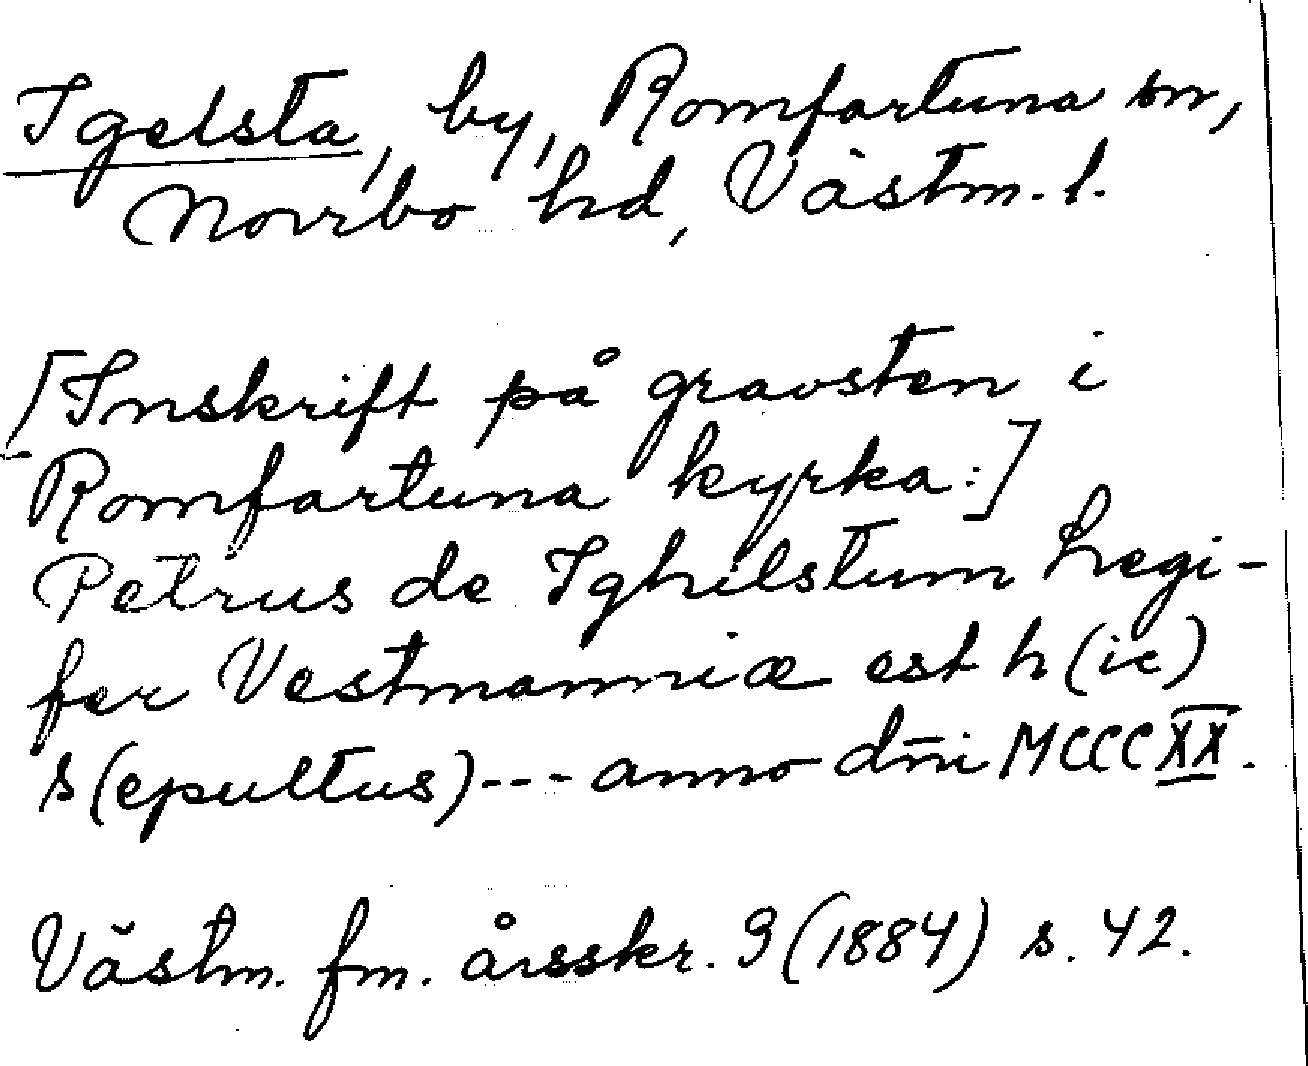 Igelsta, by, Romfartuna sn,
Norrbo hd, Västm. l.
[Inskrift på gravsten i
Romfartuna kyrka:]
Petrus de Ighilstum Legi-
fer Vestmanniæ est h(ic)
s(epultus)--- anno dn̄i MCCCXX.
Västm. fm. årsskr. 9 (1884) s. 42.